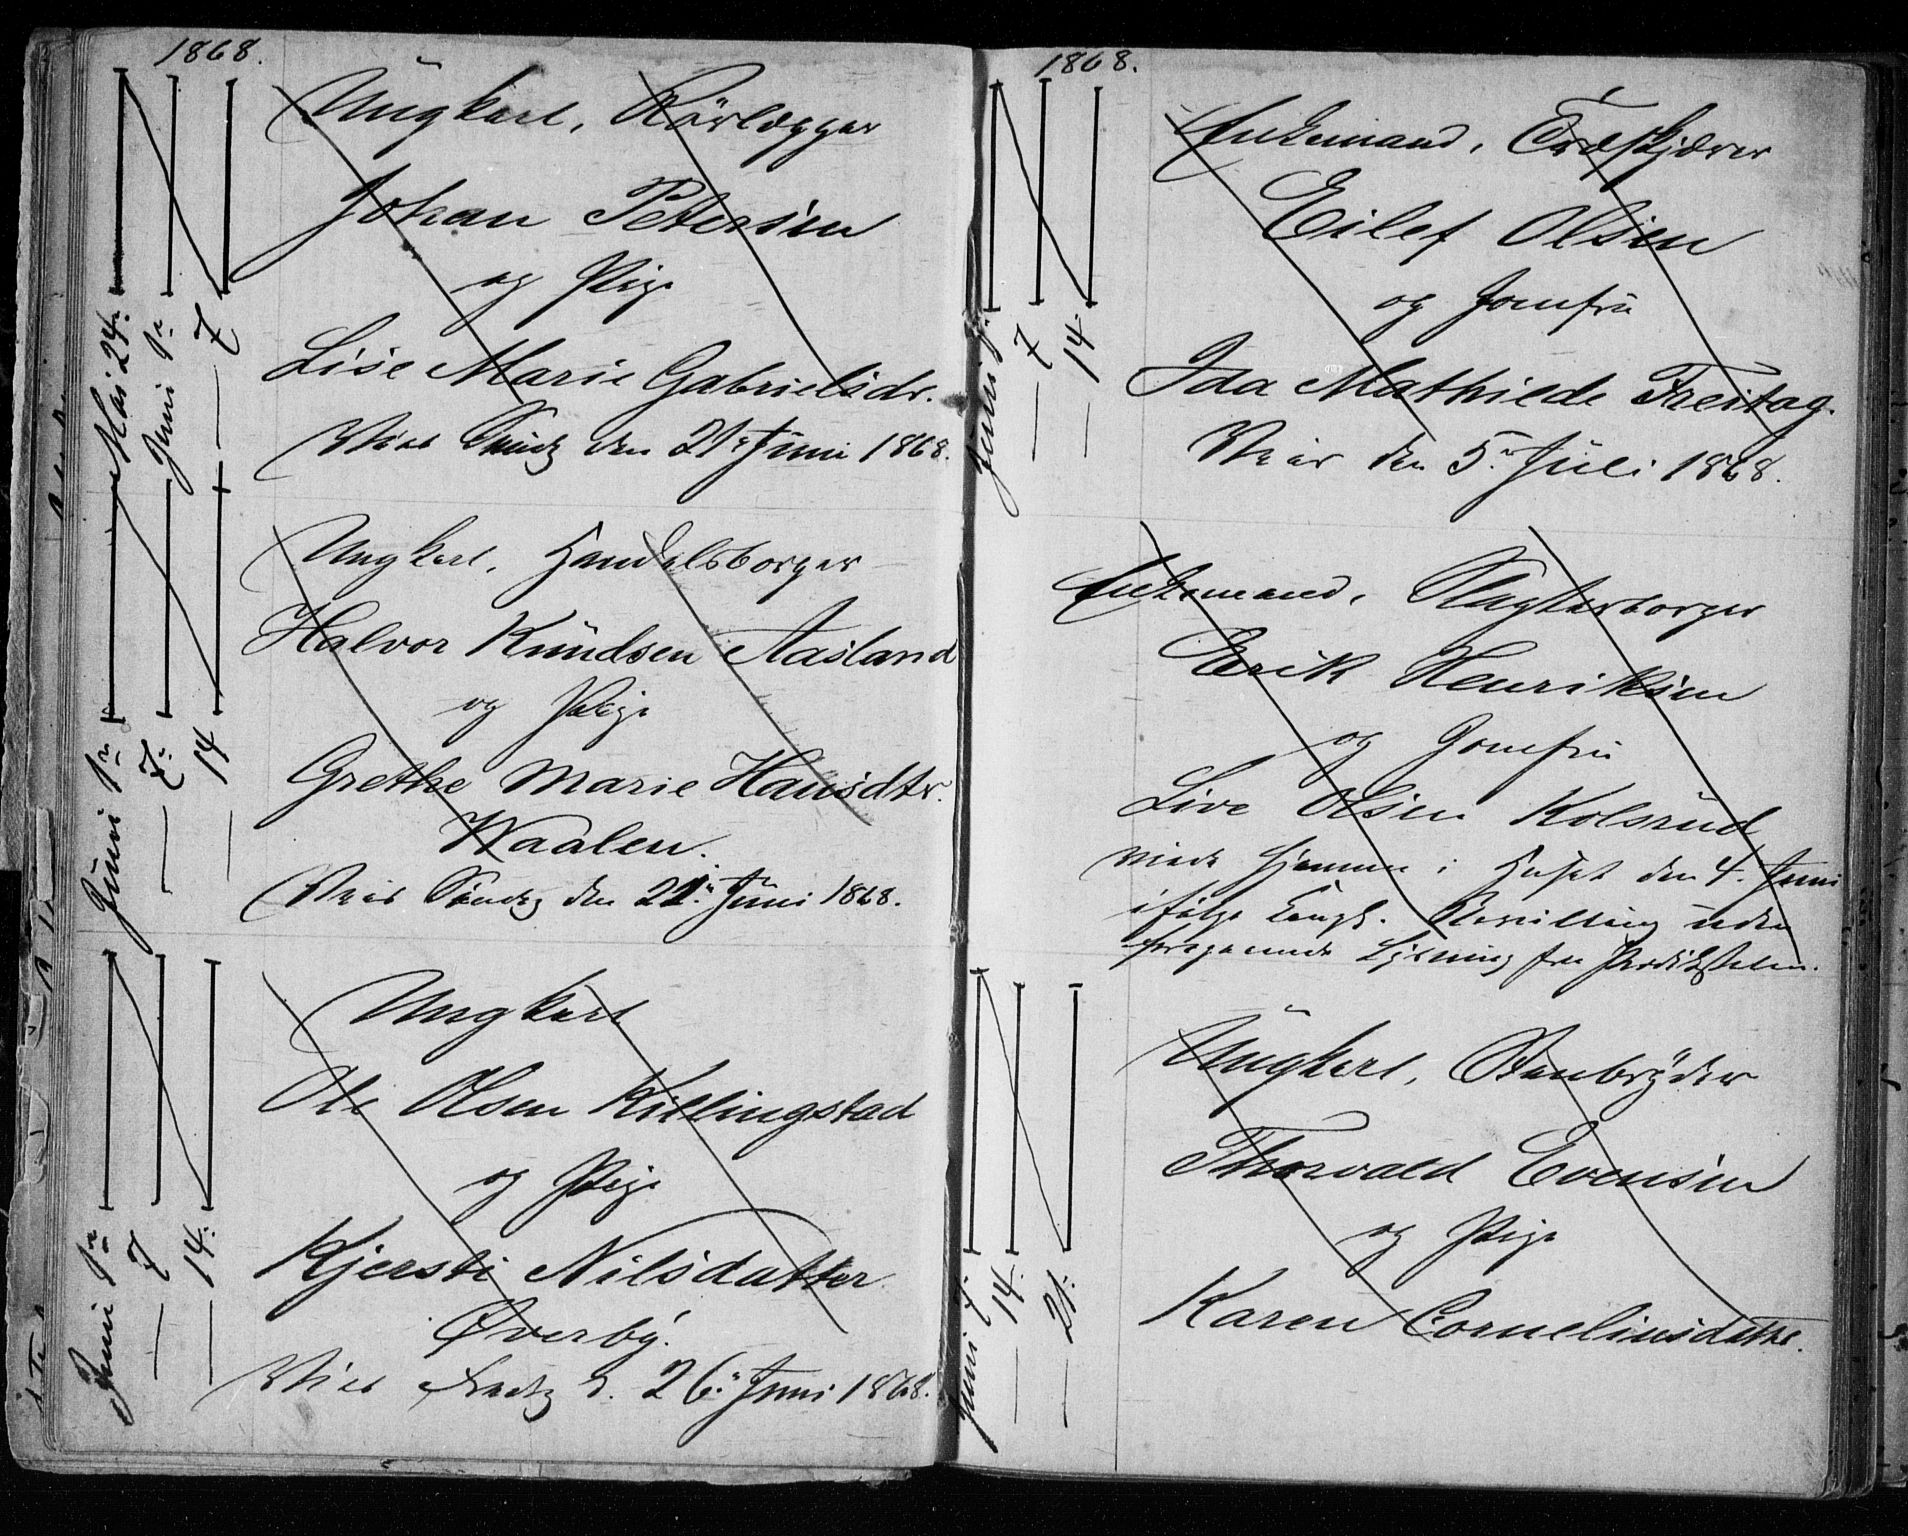 1868.
Mai 24.
Juni 1ste
— 7
Ungkarl, Rörlægger
Johan Petersen
og Pige
Lise Marie Gabrielsdr.
Viet Söndg den 21de Juni 1868.
Juni 1ste
— 7.
— 14
Ungkarl, Handelsborger
Halvor Knudsen Aasland
og Pige
Grethe Marie Hansdtr.
Waalen.
Viet Söndg den 21de Juni 1868.
Juni 1ste
— 7
— 14.
Ungkarl
Ole Olsen Killingstad
og Pige
Kjersti Nilsdatter
Øverby.
Viet Fredg d. 26de Juni 1868.
1868.
Juni 1ste
— 7
— 14.
Enkemand, Træskjærer
Eilef Olsen
og Jomfru
Ida Mathilde Freitag.
Viet den 5te Juli 1868.
Enkemand, Slagterborger
Erik Henriksen
og Jomfru
Live Olsen Kolsrud
viede hjemme i Huset den 4. Juni
ifölge Kongl. Bevilling uden
foregaaende Lysning fra Prædikestolen.
Juni 7.
— 14.
— 21.
Ungkarl, Stenbryder
Thorvald Evensen
og Pige
Karen Corneliusdattr.